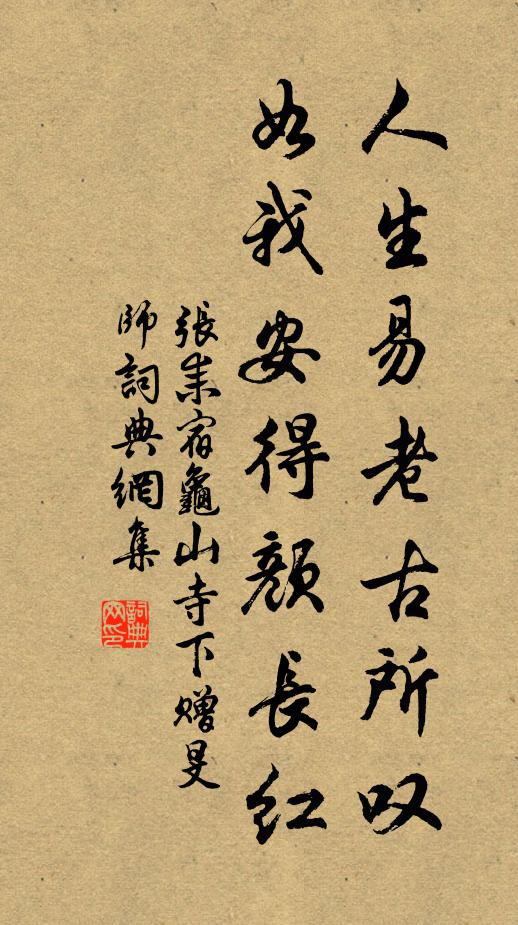 人生易老古所叹
如我安得颜長红
張耒宿龜山寺下赠旻
師詞典網集
詞典网印